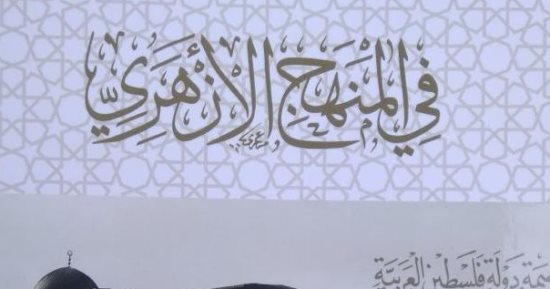 في المنهج الأزهري
دولة فلسطين العربية